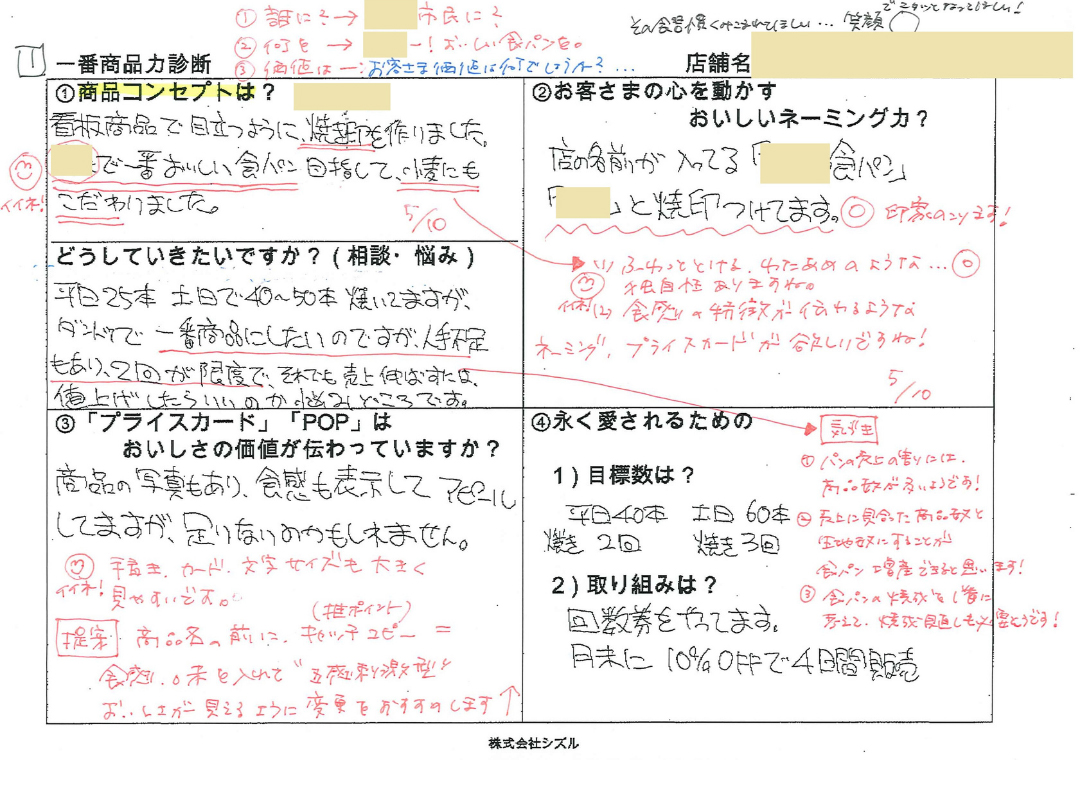 ① 誰に？→ 市民に？
② 何を → 一！おいしい食パンを。
③ 価値は一：お客さま価値は何でしょうか？…
笑顔
1
一番商品力診断
店舗名
①商品コンセプトは？
看板商品で目立つように、焼印を作りました。
で一番おいしい食パン目指して、小麦にも
こだわりました。
イイネ！
5/10
②お客さまの心を動かす
おいしいネーミング力？
店の名前が入ってる「 食パン」
「 」と焼印つけてます。
印象のこります！
(1) ふわっととける、わたあめのような…
独自性ありますね。
イイネ！
(2) 食感の特徴が伝わるような
ネーミング、プライスカードが欲しいですね！
5/10
どうしていきたいですか？（相談・悩み）
平日25本 土日で40〜50本焼いてますが、
ダントツで一番商品にしたいのですが、人手不足
もあり、2回が限度で、それでも売上伸ばすには、
値上げしたらいいのか悩みどころです。
③「プライスカード」「POP」は
おいしさの価値が伝わっていますか？
商品の写真もあり、食感も表示してアピール
してますが、足りないのかもしれません。
イイネ！
手書き、カード、文字サイズも大きく
見やすいです。
（推ポイント）
提案 商品名の前に、キャッチコピー＝
食感、味を入れて“五感刺激型”
おいしさが見えるように変更をおすすめします↑
④永く愛されるための
１）目標数は？
平日40本 土日60本
焼き2回 焼き3回
２）取り組みは？
回数券をやってます。
月末に10%OFFで4日間販売
気づき
① パンの売上の割りには、
商品数が多いようです！
② 売上に見合った商品数と
生地数にすることが
食パン増産できると思います！
③ 食パンの焼成を1番に
考えて、焼成見直しも必要そうです！
株式会社シズル